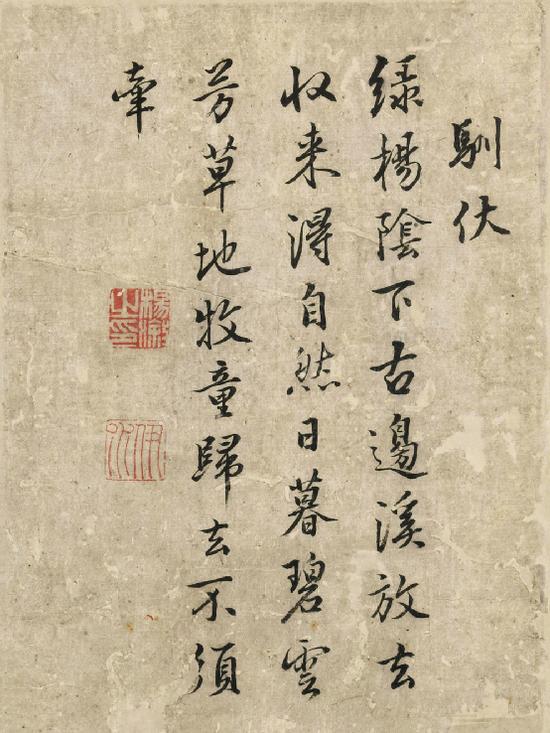 馴伏
緑楊陰下古邊溪放去
收来得自然日暮碧雲
芳草地牧童歸去不須
牽